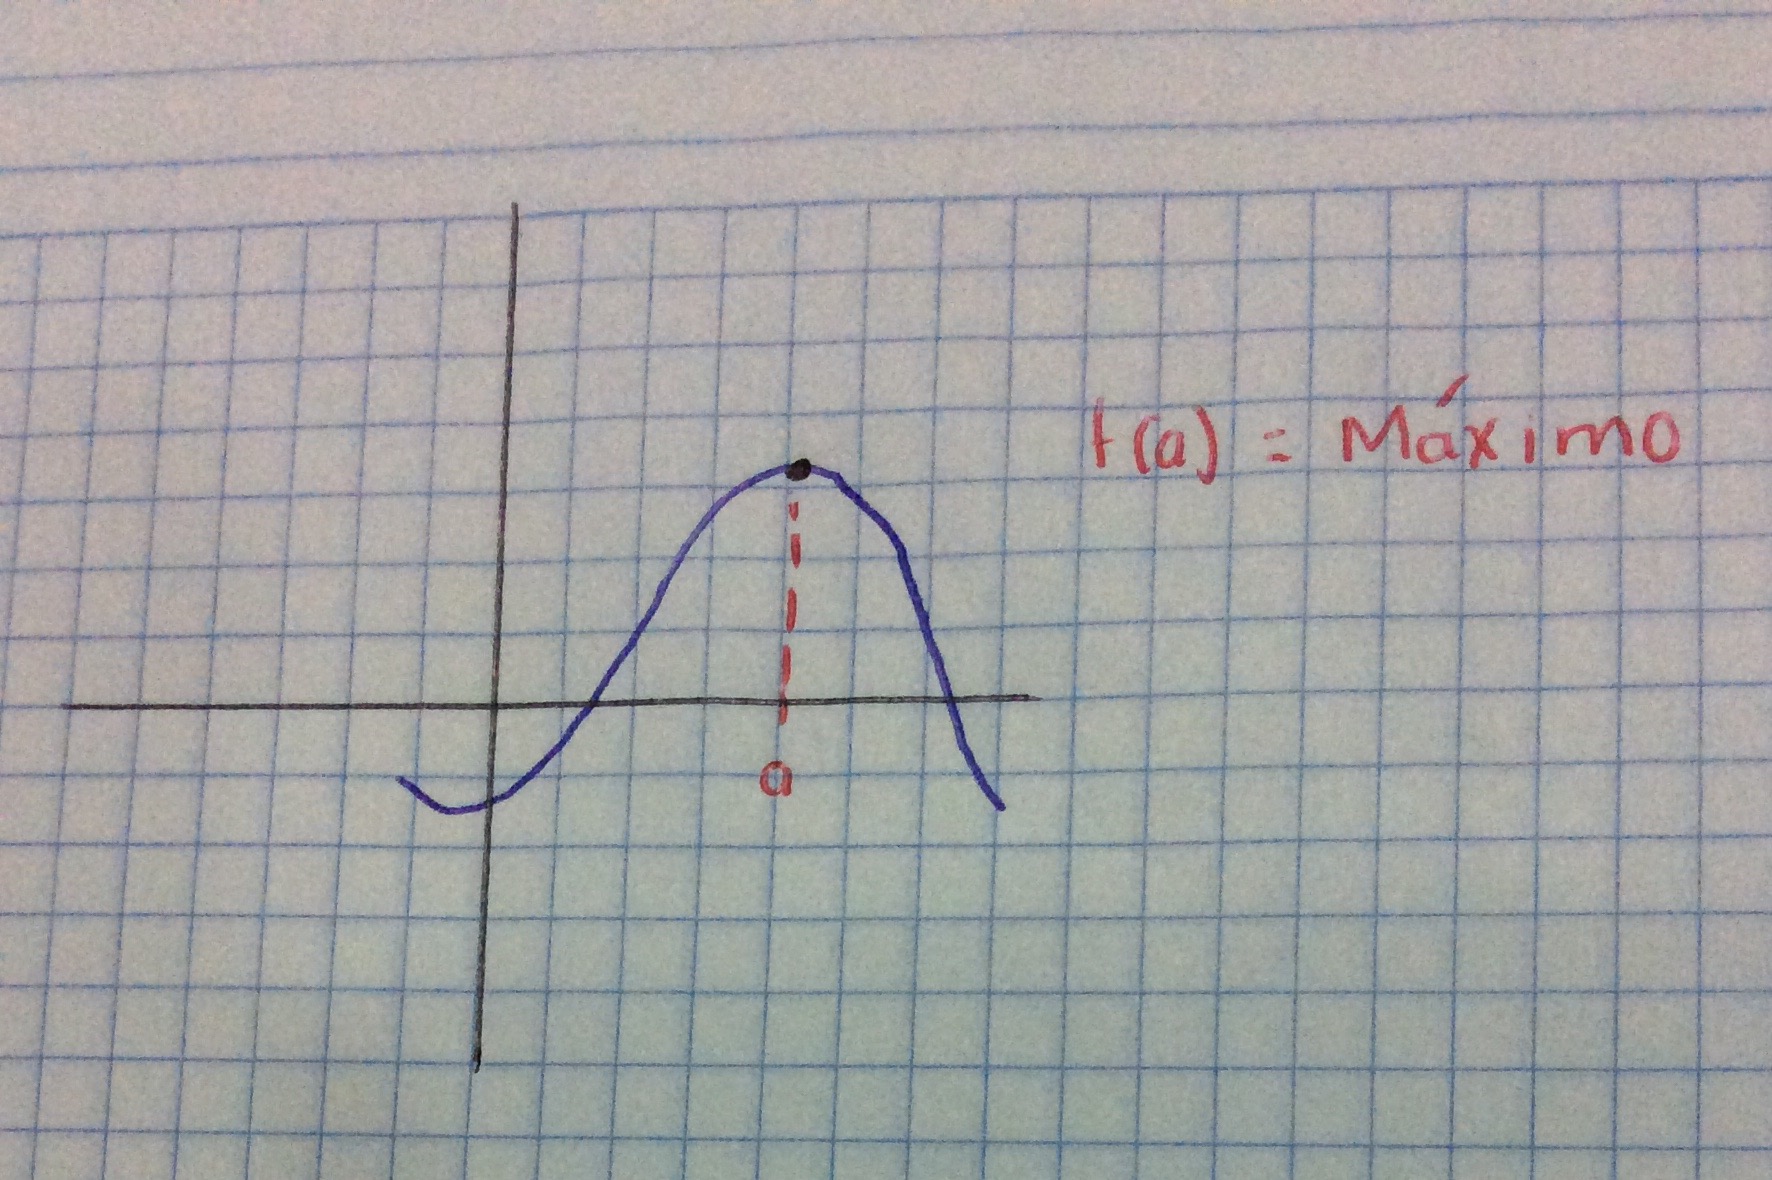 f(a) = Máximo
a